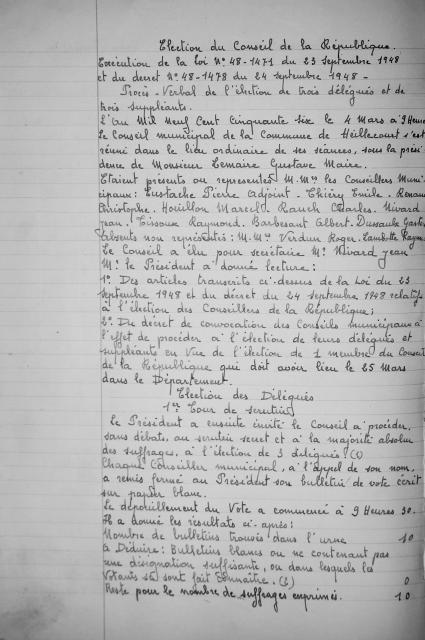 Election du Conseil de la République.
Exécution de la Loi N° 48-1471 du 23 septembre 1948
et du décret N° 48-1478 du 24 septembre 1948 -
Procès-Verbal de l'élection de trois délégués et de
trois suppléants.
L'An Mil Neuf Cent Cinquante six le 4 Mars à 9 Heures
Le Conseil municipal de la Commune de Heillecourt s'est
réuni dans le lieu ordinaire de ses séances, sous la prési
dence de Monsieur Lemaire Gustave Maire.
Etaient présents ou représentés M.M.rs les Conseillers Muni-
cipaux: Eustache Pierre Adjoint - Thiéry Emile - Renau
Christophe. Houillon Marcel. Rauch Charles. Nivard
Jean. Boissoux Raymond. Barbesant Albert. Dussaulx Gaston
Absents non représentés: M.M.rs Verdun Roger. Lambotte Raym
Le Conseil a élu pour secrétaire Mr Nivard Jean
Mr le Président a donné lecture:
1° Des articles transcrits ci-dessus de la Loi du 23
septembre 1948 et du décret du 24 septembre 1948 relatifs
à l'élection des Conseillers de la République;
2° Du décret de convocation des Conseils municipaux à
l'effet de procéder à l'élection de leurs délégués et
suppléants en Vue de l'élection de 1 membre du Conseil
de la République qui doit avoir lieu le 25 Mars
dans le Département.
Election des Délégués
1er Tour de scrutin
Le Président a ensuite invité le Conseil à procéder,
sans débats, au scrutin secret et à la majorité absolue
des suffrages, à l'élection de 3 délégués (1)
Chaque Conseiller municipal, à l'appel de son nom,
a remis fermé au Président son bulletin de vote écrit
sur papier blanc.
Le dépouillement du Vote a commencé à 9 Heures 30.
Il a donné les résultats ci-après:
Nombre de bulletins trouvés dans l'urne 10
A Déduire: Bulletins blancs ou ne contenant pas
une désignation suffisante, ou dans lesquels les
Votants se sont fait connaître. (2) 0
Reste pour le nombre de suffrages exprimés. 10